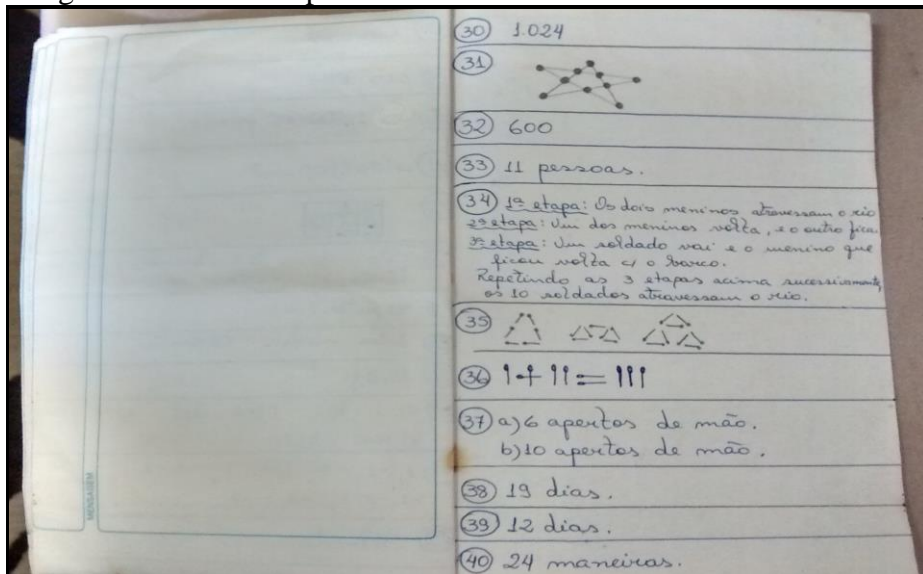 MENSAGEM
30 1.024
31
32 600
33 11 pessoas.
34 1ª etapa: Os dois meninos atravessam o rio
2ª etapa: Um dos meninos volta, e o outro fica.
3ª etapa: Um soldado vai e o menino que
ficou volta c/ o barco.
Repetindo as 3 etapas acima sucessivamente,
os 10 soldados atravessam o rio.
35
36
37 a) 6 apertos de mão.
b) 10 apertos de mão.
38 19 dias.
39 12 dias.
40 24 maneiras.